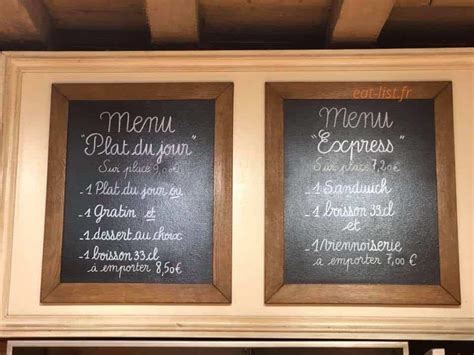 Menu
"Plat du jour"
Sur place 9,00€
-1 Plat du jour ou
-1 Gratin et
-1 dessert au choix
-1 boisson 33.cl
à emporter 8,50€
eat-list.fr
Menu
"Express"
Sur place 7,20€
-1 Sandwich
-1 boisson 33.cl
et
-1 viennoiserie
à emporter 7,00€